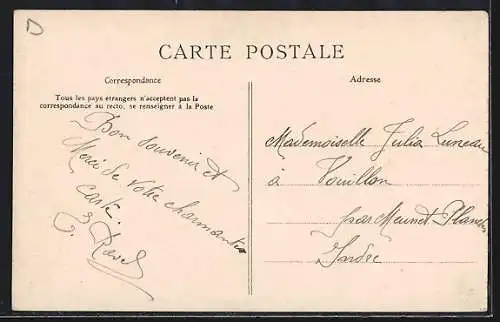 D
CARTE POSTALE
Correspondance
Tous les pays étrangers n'acceptent pas la
correspondance au recto, se renseigner à la Poste
Bon souvenir et
Merci de votre charmante
carte.
Adresse
Mademoiselle Julia Luneau
à Vouillon
par Meunet-Planches
Indre